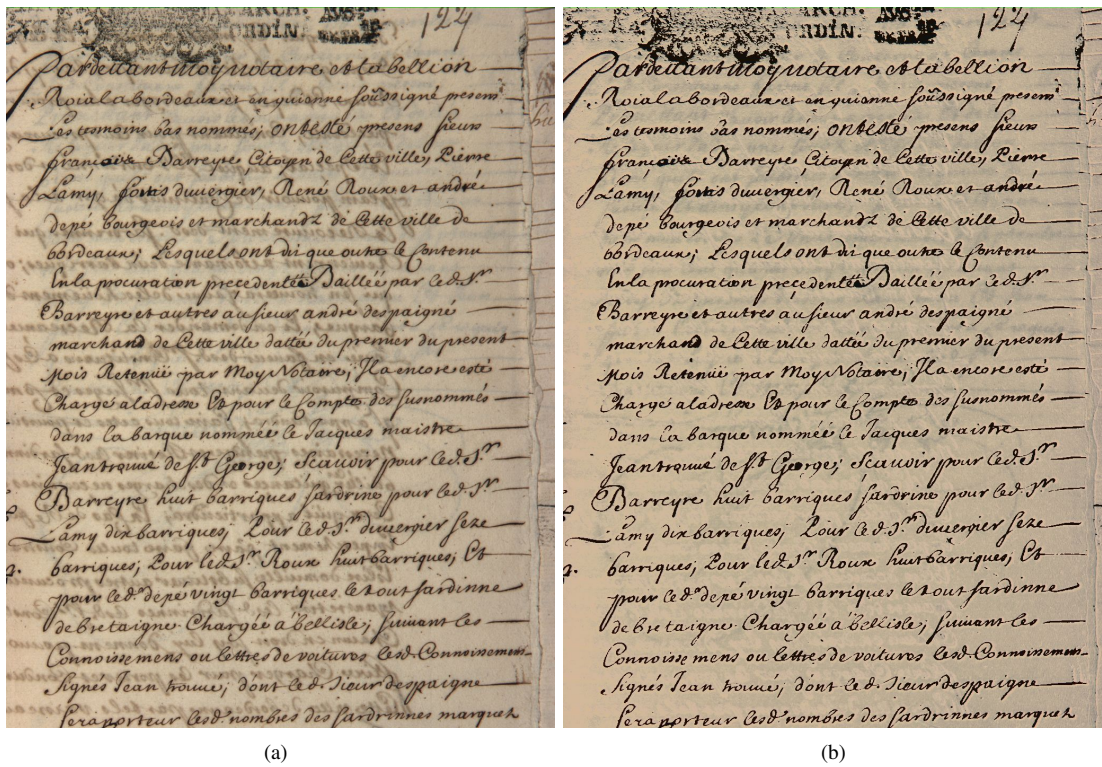 ARCH.
ORDIN.
124
Pardevant moy notaire et tabellion
Roial a bordeaux et en guienne soûssigné presens
Les tesmoins bas nommés, ont esté presens sieurs
françois Barreyre Citoyen de Cette ville, Pierre
Lamy, duvergier, René Roux et andré
depé bourgeois et marchandz de Cette ville de
bordeaux; Lesquels ont di que outre le Contenu
En la procuration precedente Baillée par led. Sr.
Barreyre et autres au sieur andré despaigné
marchand de Cette ville dattée du premier du present
Mois Retenüe par Moy Notaire; Il a encore esté
Chargé a ladresse Et pour le Compte des susnommés
dans la barque nommée le Jacques maistre
Jean trouvé de St. George; Scauoir pour led. Sr.
Barreyre huit barriques sardrine pour led. Sr.
Lamy dix barriques, Pour led. Sr. duvergier seze
barriques, Pour led. Sr. Roux huit barriques, Et
pour led. depé vingt barriques le tout sardinne
de bretaigne Chargéé à bellisle; suiuant les
Connoissemens ou lettres de voitures lesd. Connoissemens
signés Jean trouué; dont led. sieur despaigne
sera porteur lesd. nombres des sardrinnes marquet
(a)
ARCH.
ORDIN.
124
Pardevant moy notaire et tabellion
Roial a bordeaux et en guienne soûssigné presens
Les tesmoins bas nommés, ont esté presens sieurs
françois Barreyre Citoyen de Cette ville, Pierre
Lamy, duvergier, René Roux et andré
depé bourgeois et marchandz de Cette ville de
bordeaux; Lesquels ont di que outre le Contenu
En la procuration precedente Baillée par led. Sr.
Barreyre et autres au sieur andré despaigné
marchand de Cette ville dattée du premier du present
Mois Retenüe par Moy Notaire; Il a encore esté
Chargé a ladresse Et pour le Compte des susnommés
dans la barque nommée le Jacques maistre
Jean trouvé de St. George; Scauoir pour led. Sr.
Barreyre huit barriques sardrine pour led. Sr.
Lamy dix barriques, Pour led. Sr. duvergier seze
barriques, Pour led. Sr. Roux huit barriques, Et
pour led. depé vingt barriques le tout sardinne
de bretaigne Chargéé à bellisle; suiuant les
Connoissemens ou lettres de voitures lesd. Connoissemens
signés Jean trouué; dont led. sieur despaigne
sera porteur lesd. nombres des sardrinnes marquet
(b)